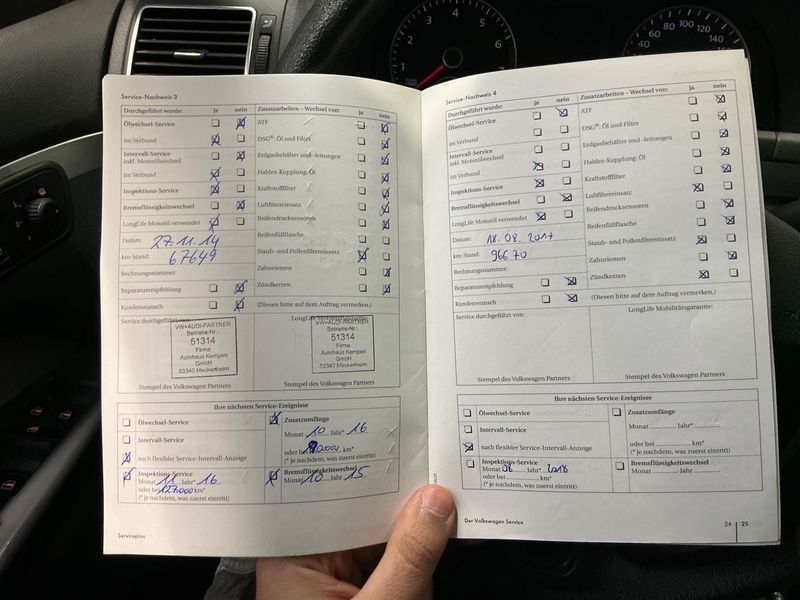 Service-Nachweis 3
Durchgeführt wurde: ja nein
Ölwechsel-Service
im Verbund
Intervall-Service
inkl. Motorölwechsel
im Verbund
Inspektions-Service
Bremsflüssigkeitswechsel
LongLife Motoröl verwendet
Datum: 27.11.14
km-Stand: 67649
Rechnungsnummer:
Reparaturempfehlung
Kundenwunsch
Service durchgeführt von:
VW+AUDI-PARTNER
Betriebs-Nr.:
51314
Firma
Autohaus Kempen
GmbH
53340 Meckenheim
Stempel des Volkswagen Partners
Zusatzarbeiten – Wechsel von: ja nein
ATF
DSG®: Öl und Filter
Erdgasbehälter und -leitungen
Haldex-Kupplung: Öl
Kraftstofffilter
Luftfiltereinsatz
Reifendrucksensoren
Reifenfüllflasche
Staub- und Pollenfiltereinsatz
Zahnriemen
Zündkerzen
(Diesen bitte auf dem Auftrag vermerken.)
VW+AUDI-PARTNER
Betriebs-Nr.:
51314
Firma
Autohaus Kempen
GmbH
53340 Meckenheim
Stempel des Volkswagen Partners
Ihre nächsten Service-Ereignisse
Ölwechsel-Service
Intervall-Service
nach flexibler Service-Intervall-Anzeige
Inspektions-Service
Monat 11 Jahr* 16
oder bei 127000 km*
(* je nachdem, was zuerst eintritt)
Zusatzumfänge
Monat 10 Jahr* 16
oder bei km*
(* je nachdem, was zuerst eintritt)
Bremsflüssigkeitswechsel
Monat 10 Jahr 15
Serviceplan
Service-Nachweis 4
Durchgeführt wurde: ja nein
Ölwechsel-Service
im Verbund
Intervall-Service
inkl. Motorölwechsel
im Verbund
Inspektions-Service
Bremsflüssigkeitswechsel
LongLife Motoröl verwendet
Datum: 18.08.2017
km-Stand: 96670
Rechnungsnummer:
Reparaturempfehlung
Kundenwunsch
Service durchgeführt von:
Stempel des Volkswagen Partners
Zusatzarbeiten – Wechsel von: ja nein
ATF
DSG®: Öl und Filter
Erdgasbehälter und -leitungen
Haldex-Kupplung: Öl
Kraftstofffilter
Luftfiltereinsatz
Reifendrucksensoren
Reifenfüllflasche
Staub- und Pollenfiltereinsatz
Zahnriemen
Zündkerzen
(Diesen bitte auf dem Auftrag vermerken.)
LongLife Mobilitätsgarantie:
Stempel des Volkswagen Partners
Ihre nächsten Service-Ereignisse
Ölwechsel-Service
Intervall-Service
nach flexibler Service-Intervall-Anzeige
Inspektions-Service
Monat 08 Jahr* 2018
oder bei km*
(* je nachdem, was zuerst eintritt)
Zusatzumfänge
Monat Jahr*
oder bei km*
(* je nachdem, was zuerst eintritt)
Bremsflüssigkeitswechsel
Monat Jahr
Der Volkswagen Service
24 25
1 2 3 4 5 6 7
40 60 80 100 120